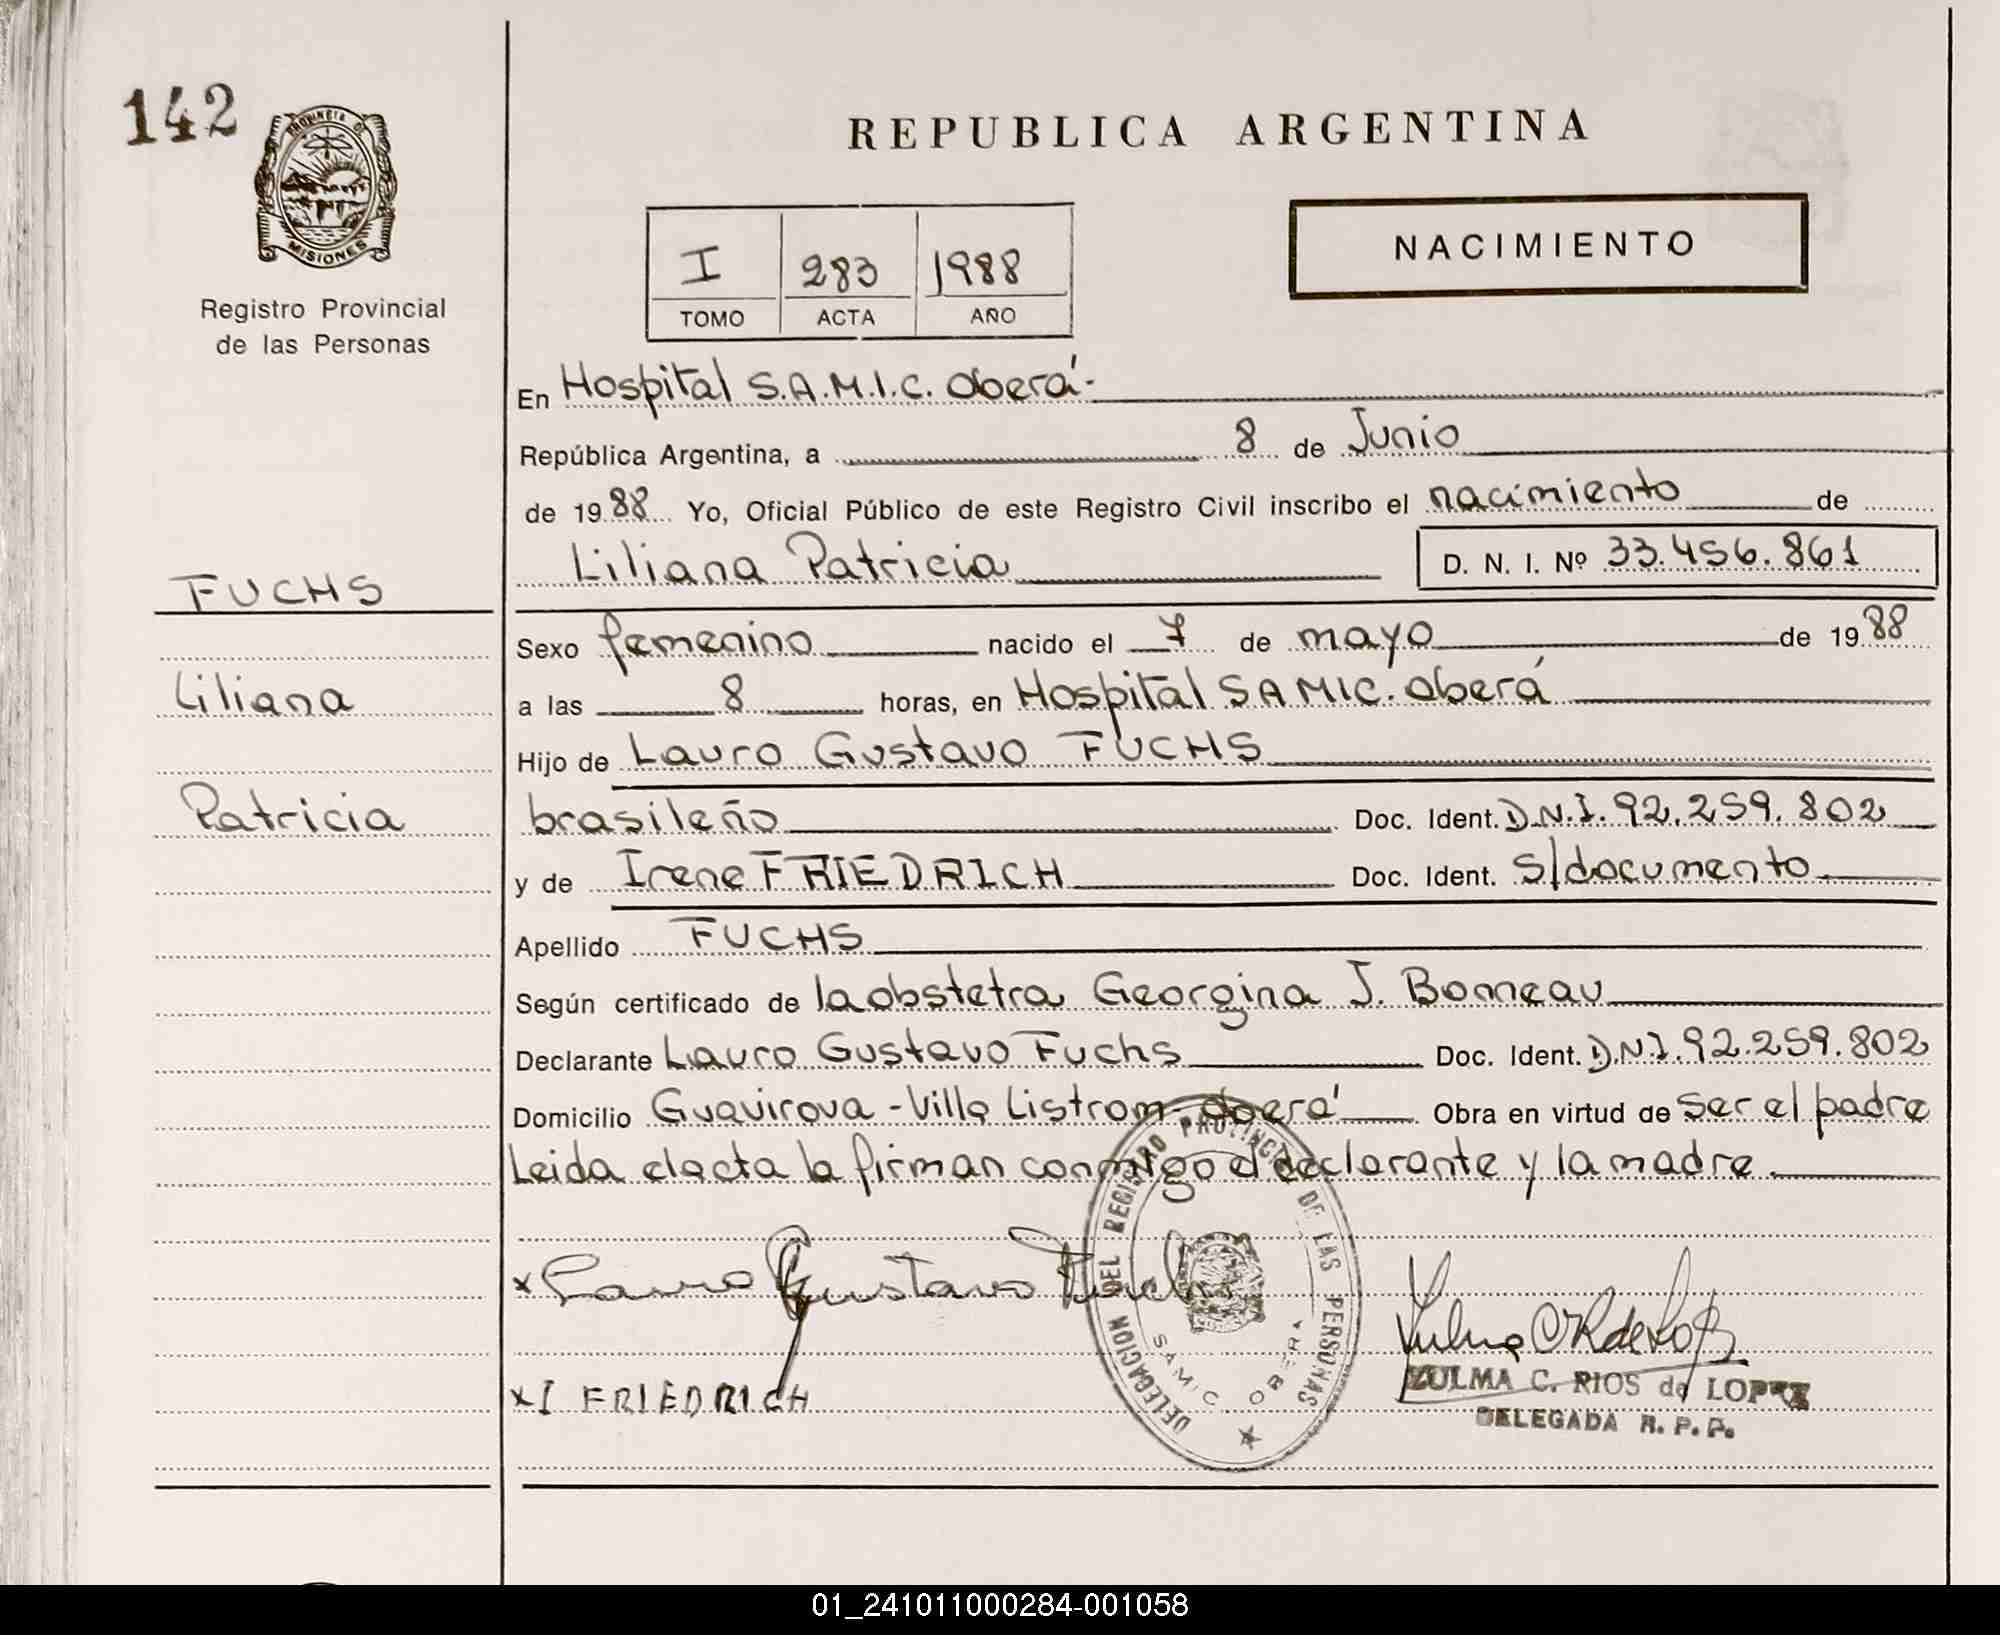 142
PROVINCIA DE
MISIONES
Registro Provincial
de las Personas
REPUBLICA ARGENTINA
I 283 1988
TOMO ACTA AÑO
NACIMIENTO
En Hospital S.A.M.I.C. Oberá.-
República Argentina, a 8 de Junio
de 1988 Yo, Oficial Público de este Registro Civil inscribo el nacimiento de
Liliana Patricia D. N. I. Nº 33.456.861
FUCHS
Liliana
Patricia
Sexo femenino nacido el 7 de mayo de 1988
a las 8 horas, en Hospital SAMIC. Oberá
Hijo de Lauro Gustavo FUCHS
brasileño Doc. Ident. D.N.I. 92.259.802
y de Irene FRIEDRICH Doc. Ident. S/documento
Apellido FUCHS
Según certificado de la obstetra Georgina J.
Declarante Lauro Gustavo Fuchs Doc. Ident. D.N.I. 92.259.802
Domicilio Guavirova - Villa Listrom - Oberá Obra en virtud de ser el padre
Leida el acta la firman conmigo el declarante y la madre.
x Lauro Gustavo Fuchs
x I FRIEDRICH
DELEGACION DEL REGISTRO PROVINCIAL DE LAS PERSONAS
SAMIC OBERA
ZULMA C. RIOS de LOPEZ
DELEGADA R. P. P.
01_241011000284-001058